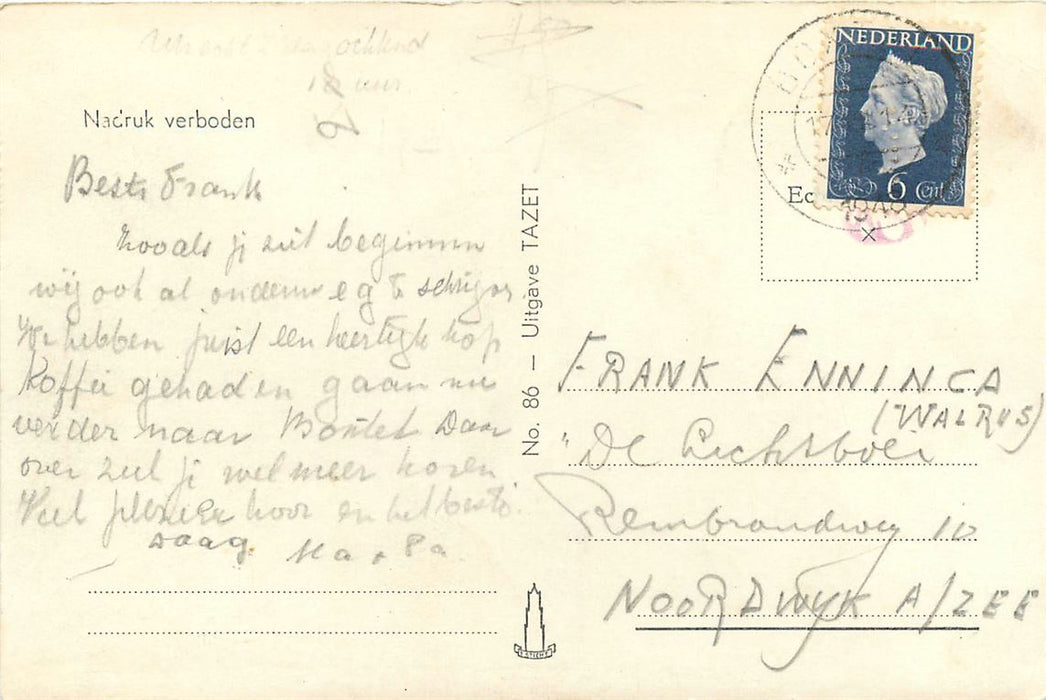 ochtend
uur
Nadruk verboden
Beste Frank
Zooals je ziet beginnen
wij ook al onderweg te schrijven
We hebben juist een heerlijk kop
koffei gehad en gaan nu
verder naar Boxtel Daar
over zul je wel meer horen
Veel plezier hoor en het beste.
Daag Ma + Pa.
No. 86 — Uitgave TAZET
NEDERLAND
6 Cent
1948
FRANK ENNINGA
(WALRUS)
"De Lichtboei
Rembrandtweg 10
NOORDWYK A/ZEE